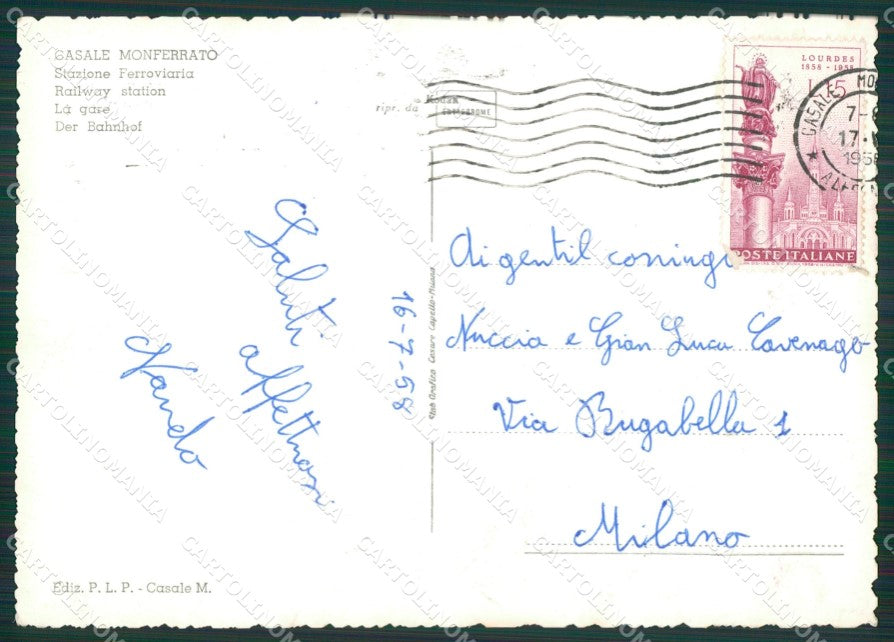 CASALE MONFERRATO
Stazione Ferroviaria
Railway station
La gare
Der Bahnhof
Kodak
ripr. da
EKTACHROME
LOURDES
1858 - 1958
L. 15
POSTE ITALIANE
CASALE MO
7-
17.
195
Saluti
affettuosi
Nando
16-7-58
Stab Grafico Cesare Capello-Milano
Ai gentil coniugi
Nuccia e Gian Luca Cavenago
Via Bugabella 1
Milano
Ediz. P. L. P. - Casale M.
CARTOLINOMANIA